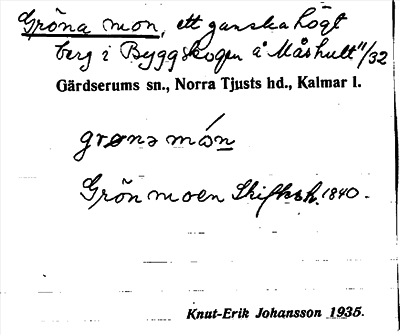 Gröna mon, ett ganska högt
berg i Byggskogen å Måshult 11/32
Gärdserums sn., Norra Tjusts hd., Kalmar l.
grøna món
Grön moen Skifksh. 1840.
Knut-Erik Johansson 1935.